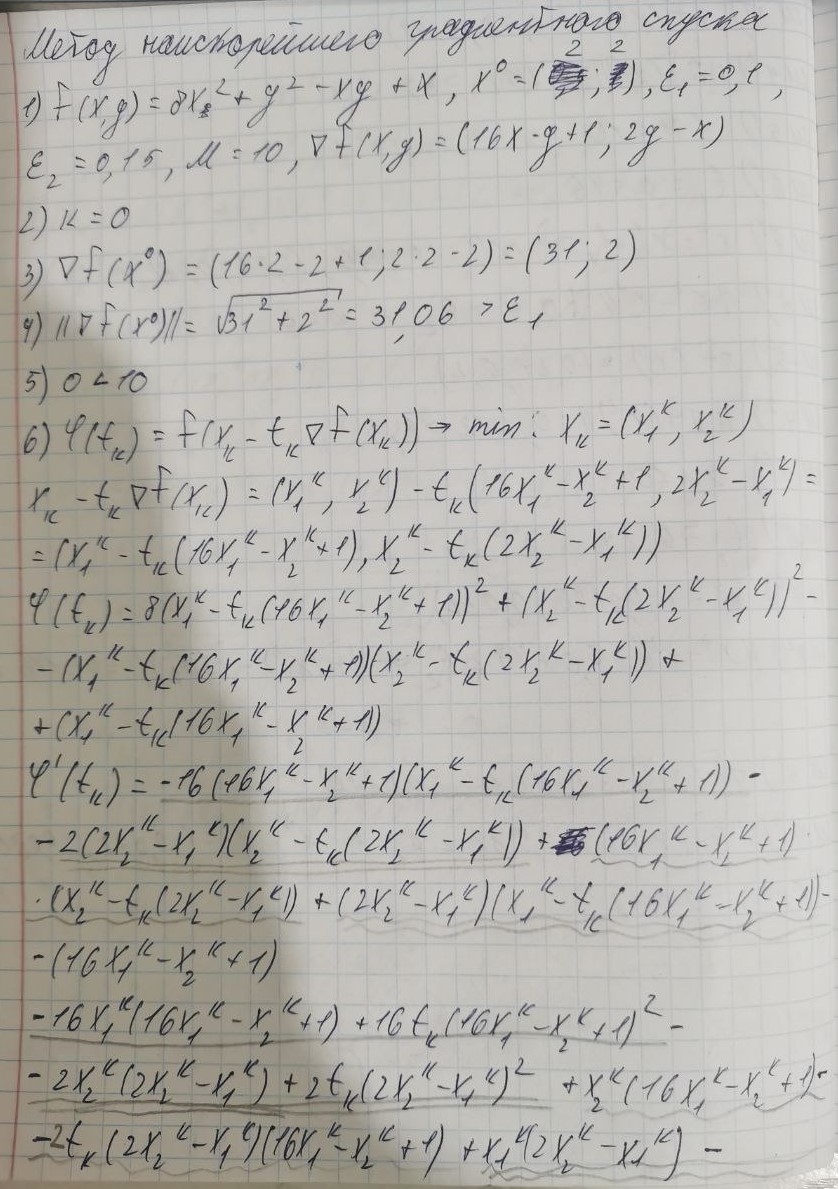 Метод наискорейшего градиентного спуска
1) f(x,y) = 8x² + y² - xy + x, x⁰ = (2; 2), ε₁ = 0,1,
ε₂ = 0,15, M = 10, ∇f(x,y) = (16x - y + 1; 2y - x)
2) к = 0
3) ∇f(x⁰) = (16·2 - 2 + 1; 2·2 - 2) = (31; 2)
4) ||∇f(x⁰)|| = √31² + 2² = 31,06 > ε₁
5) 0 < 10
6) φ(tₖ) = f(xₖ - tₖ∇f(xₖ)) → min: xₖ = (x₁ᴷ, x₂ᴷ)
xₖ - tₖ∇f(xₖ) = (x₁ᴷ, x₂ᴷ) - tₖ(16x₁ᴷ - x₂ᴷ + 1, 2x₂ᴷ - x₁ᴷ) =
= (x₁ᴷ - tₖ(16x₁ᴷ - x₂ᴷ + 1), x₂ᴷ - tₖ(2x₂ᴷ - x₁ᴷ))
φ(tₖ) = 8(x₁ᴷ - tₖ(16x₁ᴷ - x₂ᴷ + 1))² + (x₂ᴷ - tₖ(2x₂ᴷ - x₁ᴷ))² -
- (x₁ᴷ - tₖ(16x₁ᴷ - x₂ᴷ + 1))(x₂ᴷ - tₖ(2x₂ᴷ - x₁ᴷ)) +
+ (x₁ᴷ - tₖ(16x₁ᴷ - x₂ᴷ + 1))
φ'(tₖ) = -16(16x₁ᴷ - x₂ᴷ + 1)(x₁ᴷ - tₖ(16x₁ᴷ - x₂ᴷ + 1)) -
- 2(2x₂ᴷ - x₁ᴷ)(x₂ᴷ - tₖ(2x₂ᴷ - x₁ᴷ)) + (16x₁ᴷ - x₂ᴷ + 1)·
·(x₂ᴷ - tₖ(2x₂ᴷ - x₁ᴷ)) + (2x₂ᴷ - x₁ᴷ)(x₁ᴷ - tₖ(16x₁ᴷ - x₂ᴷ + 1)) -
- (16x₁ᴷ - x₂ᴷ + 1)
- 16x₁ᴷ(16x₁ᴷ - x₂ᴷ + 1) + 16tₖ(16x₁ᴷ - x₂ᴷ + 1)² -
- 2x₂ᴷ(2x₂ᴷ - x₁ᴷ) + 2tₖ(2x₂ᴷ - x₁ᴷ)² + x₂ᴷ(16x₁ᴷ - x₂ᴷ + 1) -
- 2tₖ(2x₂ᴷ - x₁ᴷ)(16x₁ᴷ - x₂ᴷ + 1) + x₁ᴷ(2x₂ᴷ - x₁ᴷ) -